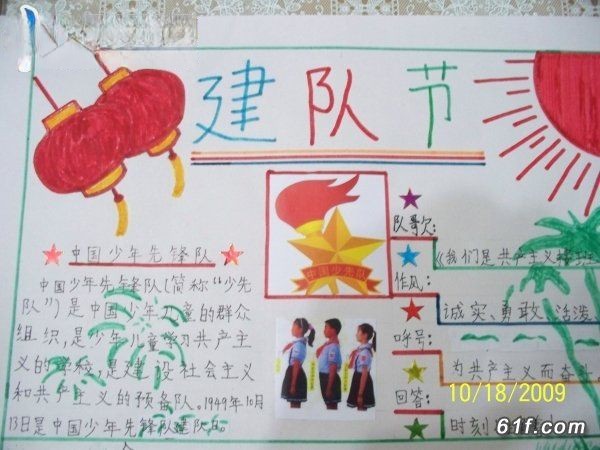 建队节
中国少年先锋队
中国少年先锋队(简称“少先
队”)是中国少年儿童的群众
组织,是少年儿童学习共产主
义的学校,是建设社会主义
和共产主义的预备队。1949年10月
13日是中国少年先锋队建队日。
中国少先队
队歌:
《我们是共产主义接班
作风:
诚实、勇敢、活泼、
呼号:
为共产主义而奋斗
回答:
时刻
10/18/2009
61f.com